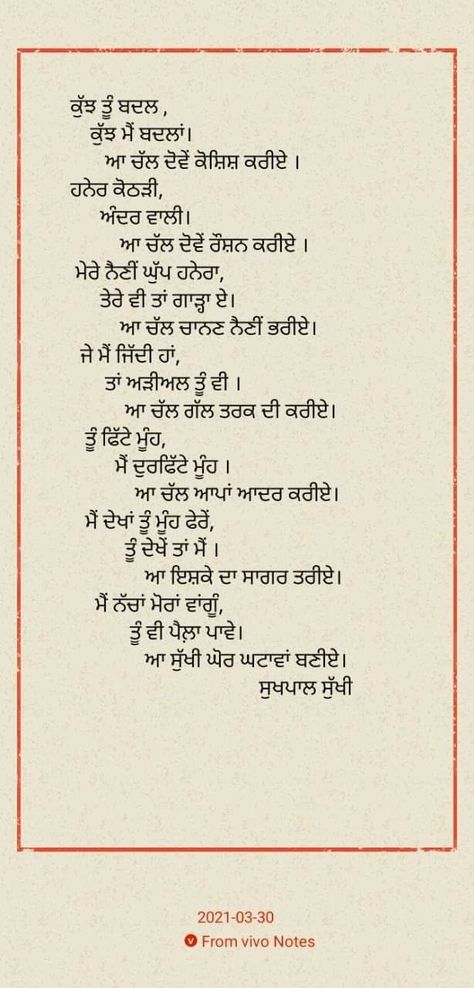 ਕੁੱਝ ਤੂੰ ਬਦਲ ,
ਕੁੱਝ ਮੈਂ ਬਦਲਾਂ।
ਆ ਚੱਲ ਦੋਵੇਂ ਕੋਸ਼ਿਸ਼ ਕਰੀਏ ।
ਹਨੇਰ ਕੋਠੜੀ,
ਅੰਦਰ ਵਾਲੀ।
ਆ ਚੱਲ ਦੋਵੇਂ ਰੌਸ਼ਨ ਕਰੀਏ ।
ਮੇਰੇ ਨੈਣੀਂ ਘੁੱਪ ਹਨੇਰਾ,
ਤੇਰੇ ਵੀ ਤਾਂ ਗਾੜ੍ਹਾ ਏ।
ਆ ਚੱਲ ਚਾਨਣ ਨੈਣੀਂ ਭਰੀਏ।
ਜੇ ਮੈਂ ਜਿੱਦੀ ਹਾਂ,
ਤਾਂ ਅੜੀਅਲ ਤੂੰ ਵੀ ।
ਆ ਚੱਲ ਗੱਲ ਤਰਕ ਦੀ ਕਰੀਏ।
ਤੂੰ ਫਿੱਟੇ ਮੂੰਹ,
ਮੈਂ ਦੁਰਫਿੱਟੇ ਮੂੰਹ ।
ਆ ਚੱਲ ਆਪਾਂ ਆਦਰ ਕਰੀਏ।
ਮੈਂ ਦੇਖਾਂ ਤੂੰ ਮੂੰਹ ਫੇਰੇਂ,
ਤੂੰ ਦੇਖੇਂ ਤਾਂ ਮੈਂ ।
ਆ ਇਸ਼ਕੇ ਦਾ ਸਾਗਰ ਤਰੀਏ।
ਮੈਂ ਨੱਚਾਂ ਮੋਰਾਂ ਵਾਂਗੂੰ,
ਤੂੰ ਵੀ ਪੈਲਾ ਪਾਵੇ।
ਆ ਸੁੱਖੀ ਘੋਰ ਘਟਾਵਾਂ ਬਣੀਏ।
ਸੁਖਪਾਲ ਸੁੱਖੀ
2021-03-30
From vivo Notes